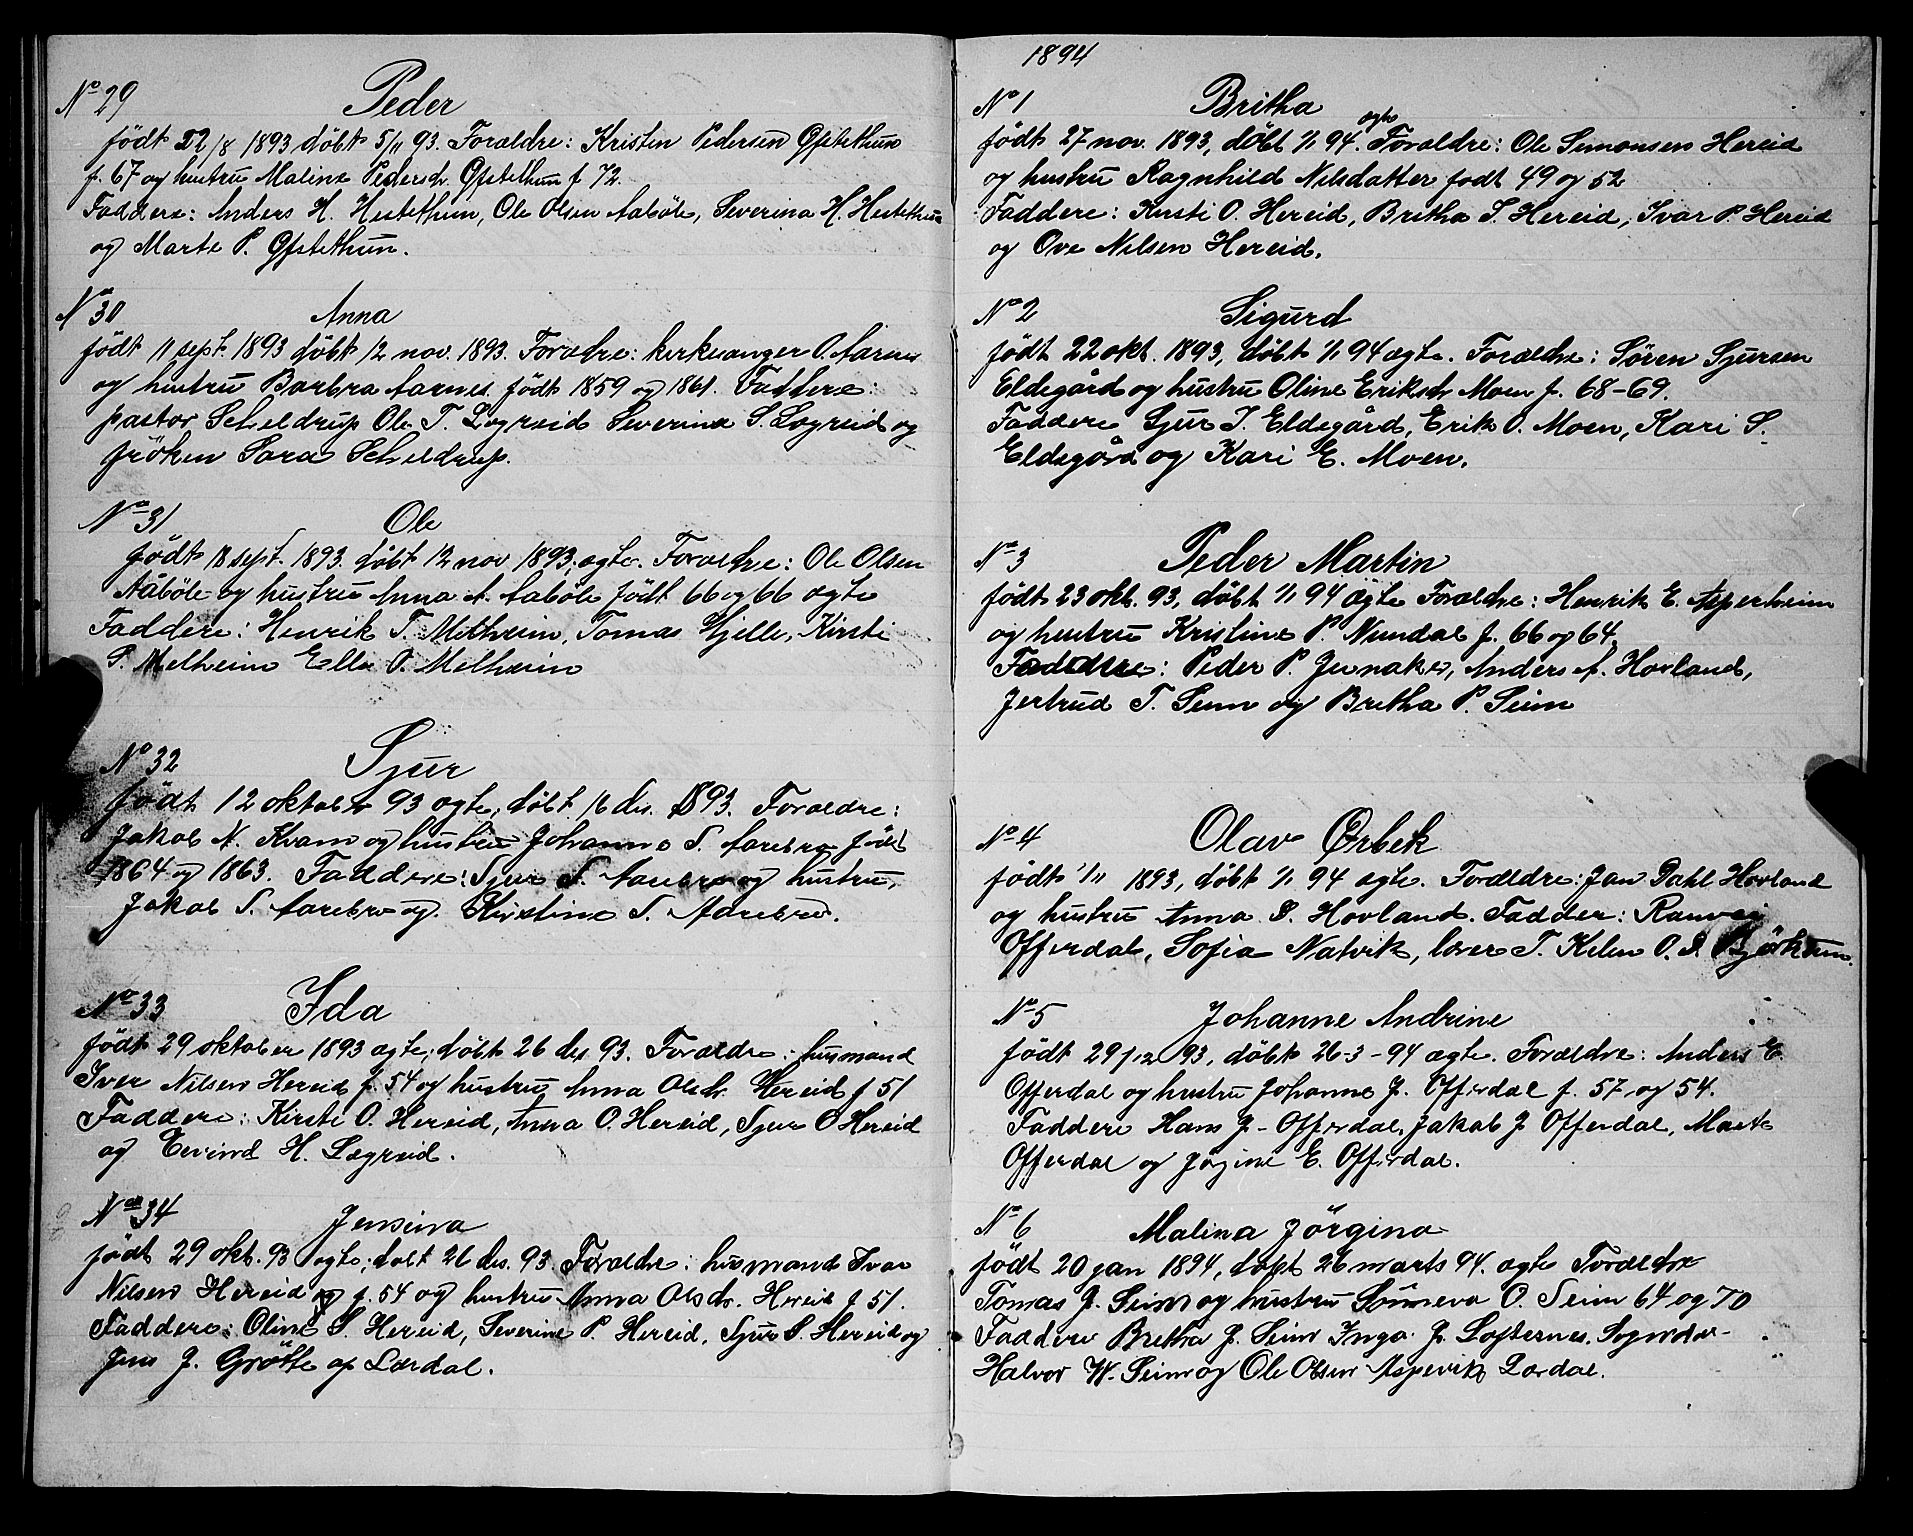 No 29 Peder
født 22/8 1893 døbt 5/11 93. Forældre: Kristen Pedersen Ofstethun
f. 67 og hustru Malina Pedersdr. Ofstethun f 72.
Faddere: Anders H. Hestethun, Ole Olsen Aabøle, Severina H. Hestethun
og Marte P. Ofstethun.
No 30 Anna
født 11 sept. 1893 døbt 12 nov. 1893. Forædre: kirkesanger O. Aarnes
og hustru Barbra Aarnes. født 1859 og 1861. Faddere:
pastor Scheldrup Ole T. Lægreid Severina S. Lægreid og
frøken Sara Scheldrup.
No 31 Ole
født 18 sept. 1893. døbt 12 nov 1893, ægte. Forældre: Ole Olsen
Aabøle og hustru Anna A. Aabøle født 66 og 66 ægte
Faddere: Henrik T. Melheim, Tomas Hjelle, Kirsti
P. Melheim Ella O. Melheim
No 32 Sjur
født 12 oktober 93 ægte, døbt 16 des. 1893. Forældre:
Jakob N. Kvam og hustru Johanne S. Aarebro født
1864 og 1863. Faddere: Sjur S. Aarebro og hustru,
Jakob S. Aarebro og Kirstine S. Aarebro.
No 33 Ida
født 29 oktober 1893 ægte; døbt 26 des 93. Forældre: husmand
Iver Nilsen Hereid f. 54 og hustru Anna Olsdr. Hereid f 51
Faddere: Kirsti O. Hereid, Anna O. Hereid, Sjur O Hereid
og Eivind H. Lægreid.
No 34 Jensina
født 29 okt. 93 ægte; døbt 26 des. 93. Forældre: husmand Ivar
Nilsen Hereid f. 54 og hustru Anna Olsdr. Hereid f 51.
Faddere: Oline S. Hereid, Severine P. Hereid, Sjur S. Hereid og
Jens J. Grøtte af Lærdal.
1894
No 1 Britha
ægte
født 27 nov. 1893, døbt 1/1 94. Forældre: Ole Simonsen Hereid
og hustru Ragnhild Nilsdatter født 49 og 52
Faddere: Kirsti O. Hereid, Britha S. Hereid, Ivar P. Hereid
og Ove Nilsen Hereid.
No 2 Sigurd
født 22 okt. 1893, døbt 1/1 94 ægte. Forældre: Søren Sjursen
Eldegård og hustru Oline Eriksdr Moen f. 68-69.
Faddere Sjur I. Eldegård, Erik O. Moen, Kari S.
Eldegård og Kari E. Moen.
No 3 Peder Martin
født 23 okt. 93, døbt 1/1 94 ægte Forældre: Henrik E. Asperheim
og hustru Kristine P. Nundal f. 66 og 64.
Faddere: Peder P. Jernaker, Anders A. Hovland,
Jertrud T. Seim og Britha P. Seim
No 4 Olav Ørbek
født 1/11 1893, døbt 1/1 94 ægte. Forældre: Jan Dahl Hovland
og hustru Anna S. Hovland. Fadder: Ranvei
Offerdal, Sofia Natvik, lærer T. Kelen O. S. Bjørkum.
No 5 Johanne Andrine
født 29/12 93, døbt 26-3-94 ægte. Forældre: Anders E.
Offerdal og hustru Johanne J. Offerdal f. 57 og 54.
Faddere Hans J. Offerdal, Jakob J Offerdal, Marte
Offerdal og Jørgine E. Offerdal.
No 6 Malina Jørgina
født 20 jan 1894, døpt 26 marts 94. ægte Forældre
Tomas J. Seim og hustru Sønneva O. Seim 64 og 70
Faddere Bretha J. Seim Inga J. Lofternes, Sogndal
Halvor W. Seim og Ole Olsen Aspevik Lærdal.